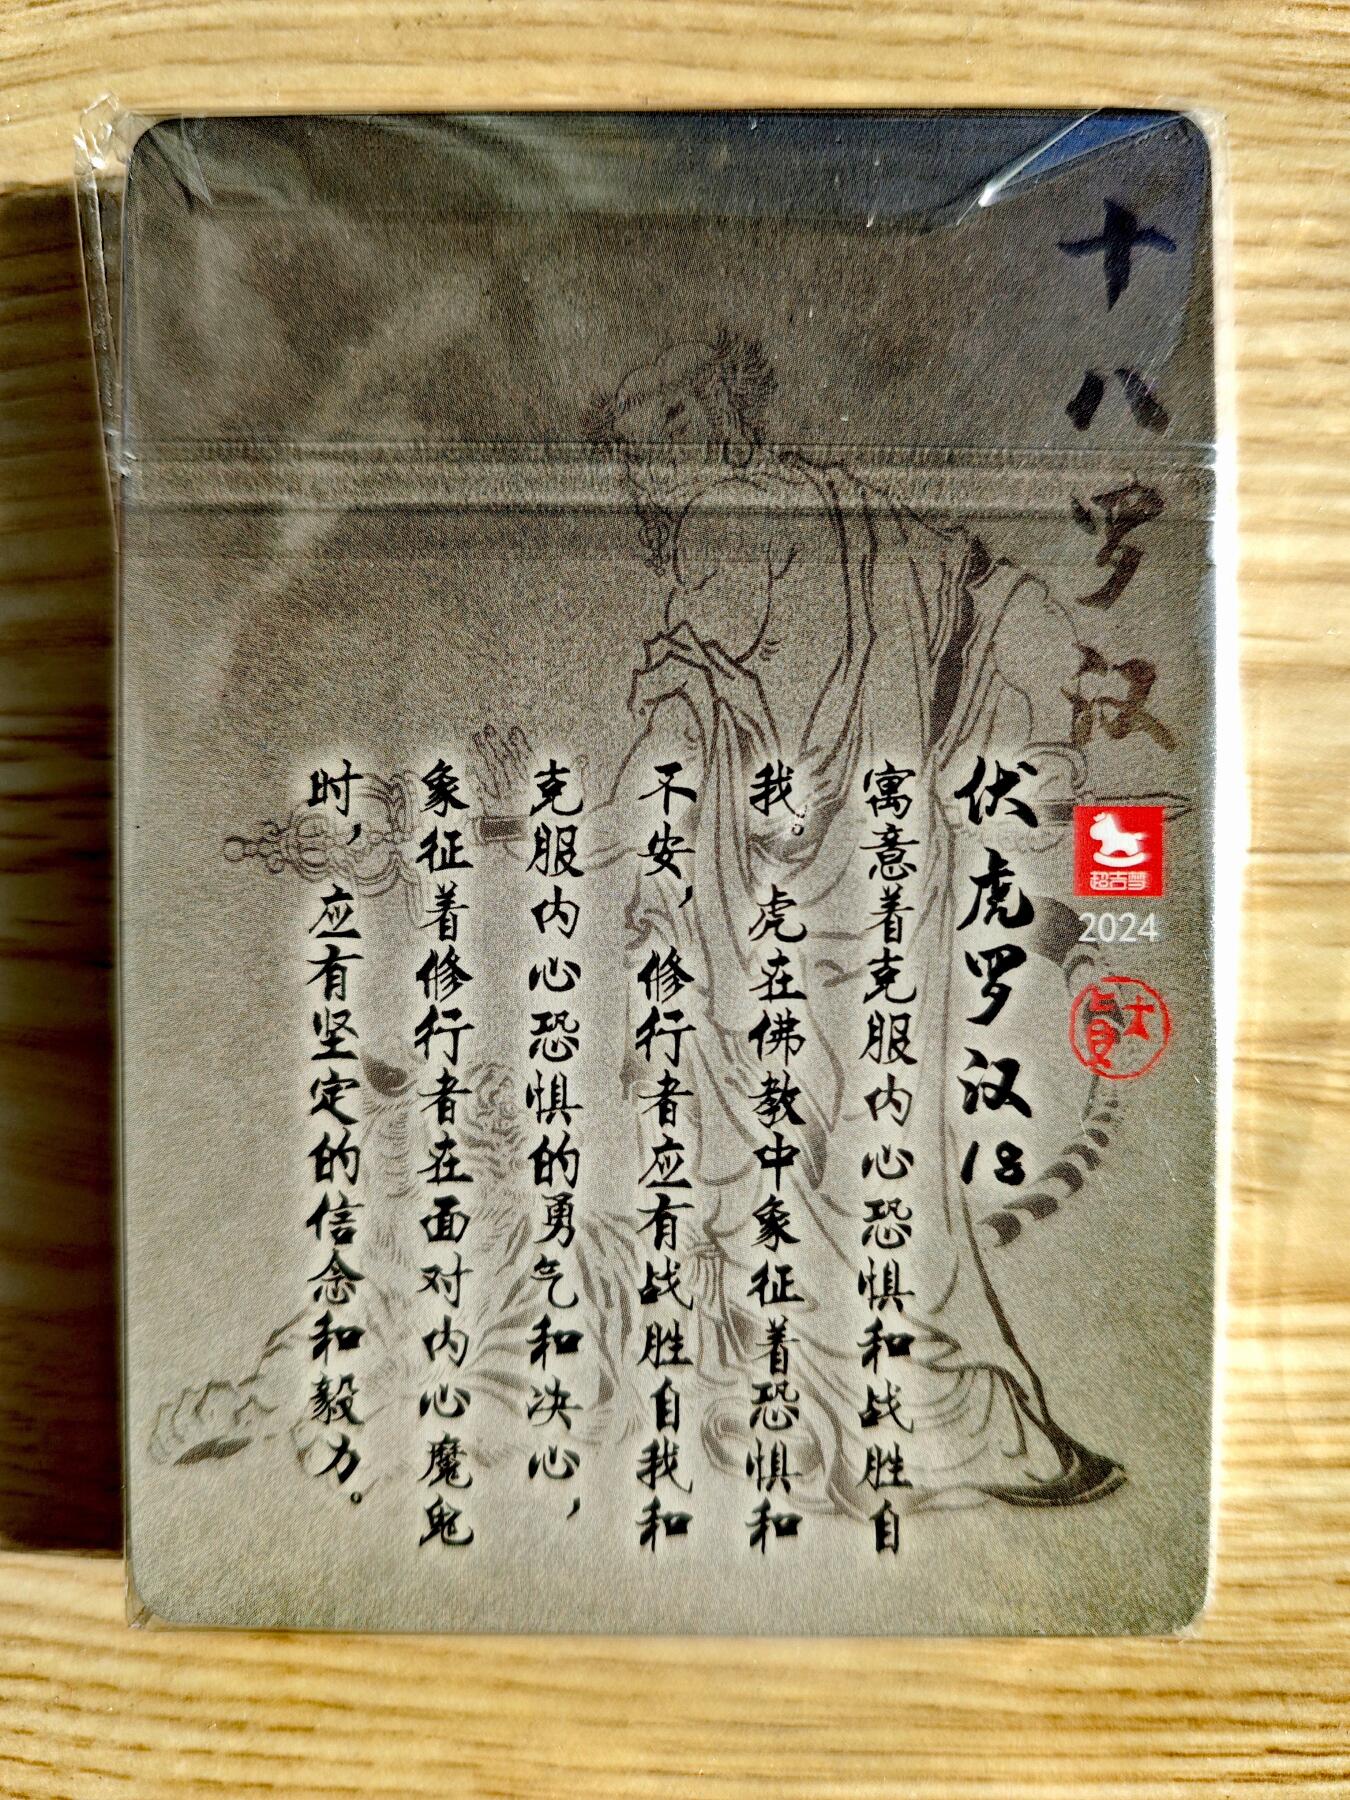 十八罗汉
超吉梦
2024
伏虎罗汉18
寓意着克服内心恐惧和战胜自
我。虎在佛教中象征着恐惧和
不安，修行者应有战胜自我和
克服内心恐惧的勇气和决心，
象征着修行者在面对内心魔鬼
时，应有坚定的信念和毅力。